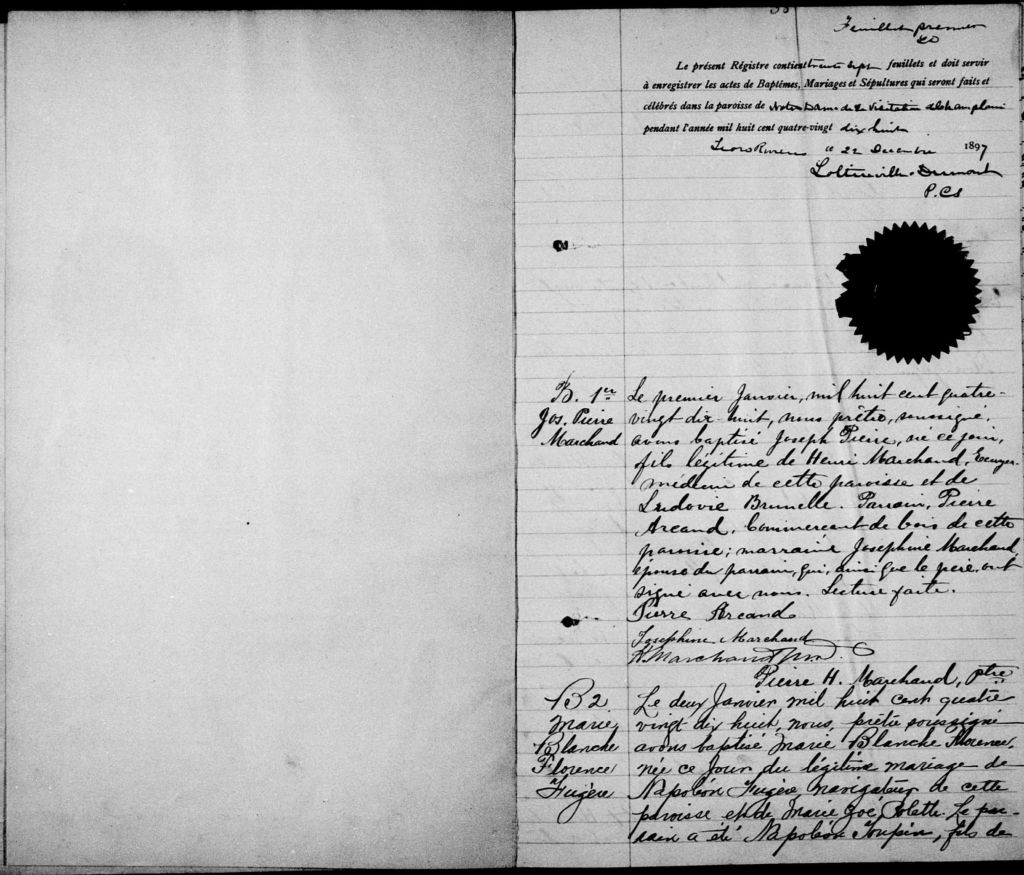 Feuillet premier
Le présent Régistre contient trente sept feuillets et doit servir
à enregistrer les actes de Baptêmes, Mariages et Sépultures qui seront faits et
célébrés dans la paroisse de Notre Dame de la Visitation de Champlain
pendant l'année mil huit cent quatre-vingt dix huit
Trois Rivières ce 22 Decembre 1897
P.C.S
B. 1er
Jos. Pierre
Marchand
Le premier Janvier, mil huit cent quatre-
vingt dix-huit, nous prêtre, soussigné,
avons baptisé Joseph Pierre, né ce jour,
fils légitime de Henri Marchand, Ecuyer-
médecin de cette paroisse et de
Ludovie Brunelle. Parrain, Pierre
Arcand, Commercant de bois de cette
paroisse; marraine Josephine Marchand,
épouse du parrain, qui, ainsi que le père, ont
signé avec nous. Lecture faite.
Pierre Arcand
Josephine Marchand
H Marchand
Pierre H. Marchand, ptre
B 2
Marie
Blanche
Florence
Fugère
Le deux Janvier mil huit cent quatre
vingt dix huit, nous, prêtre soussigné
avons baptisé Marie Blanche Florence,
née ce jour du légitime mariage de
Napoléon Fugère navigateur de cette
paroisse et de Marie Zoé Rolette. Le par-
rain a été Napoléon Toupin, fils de